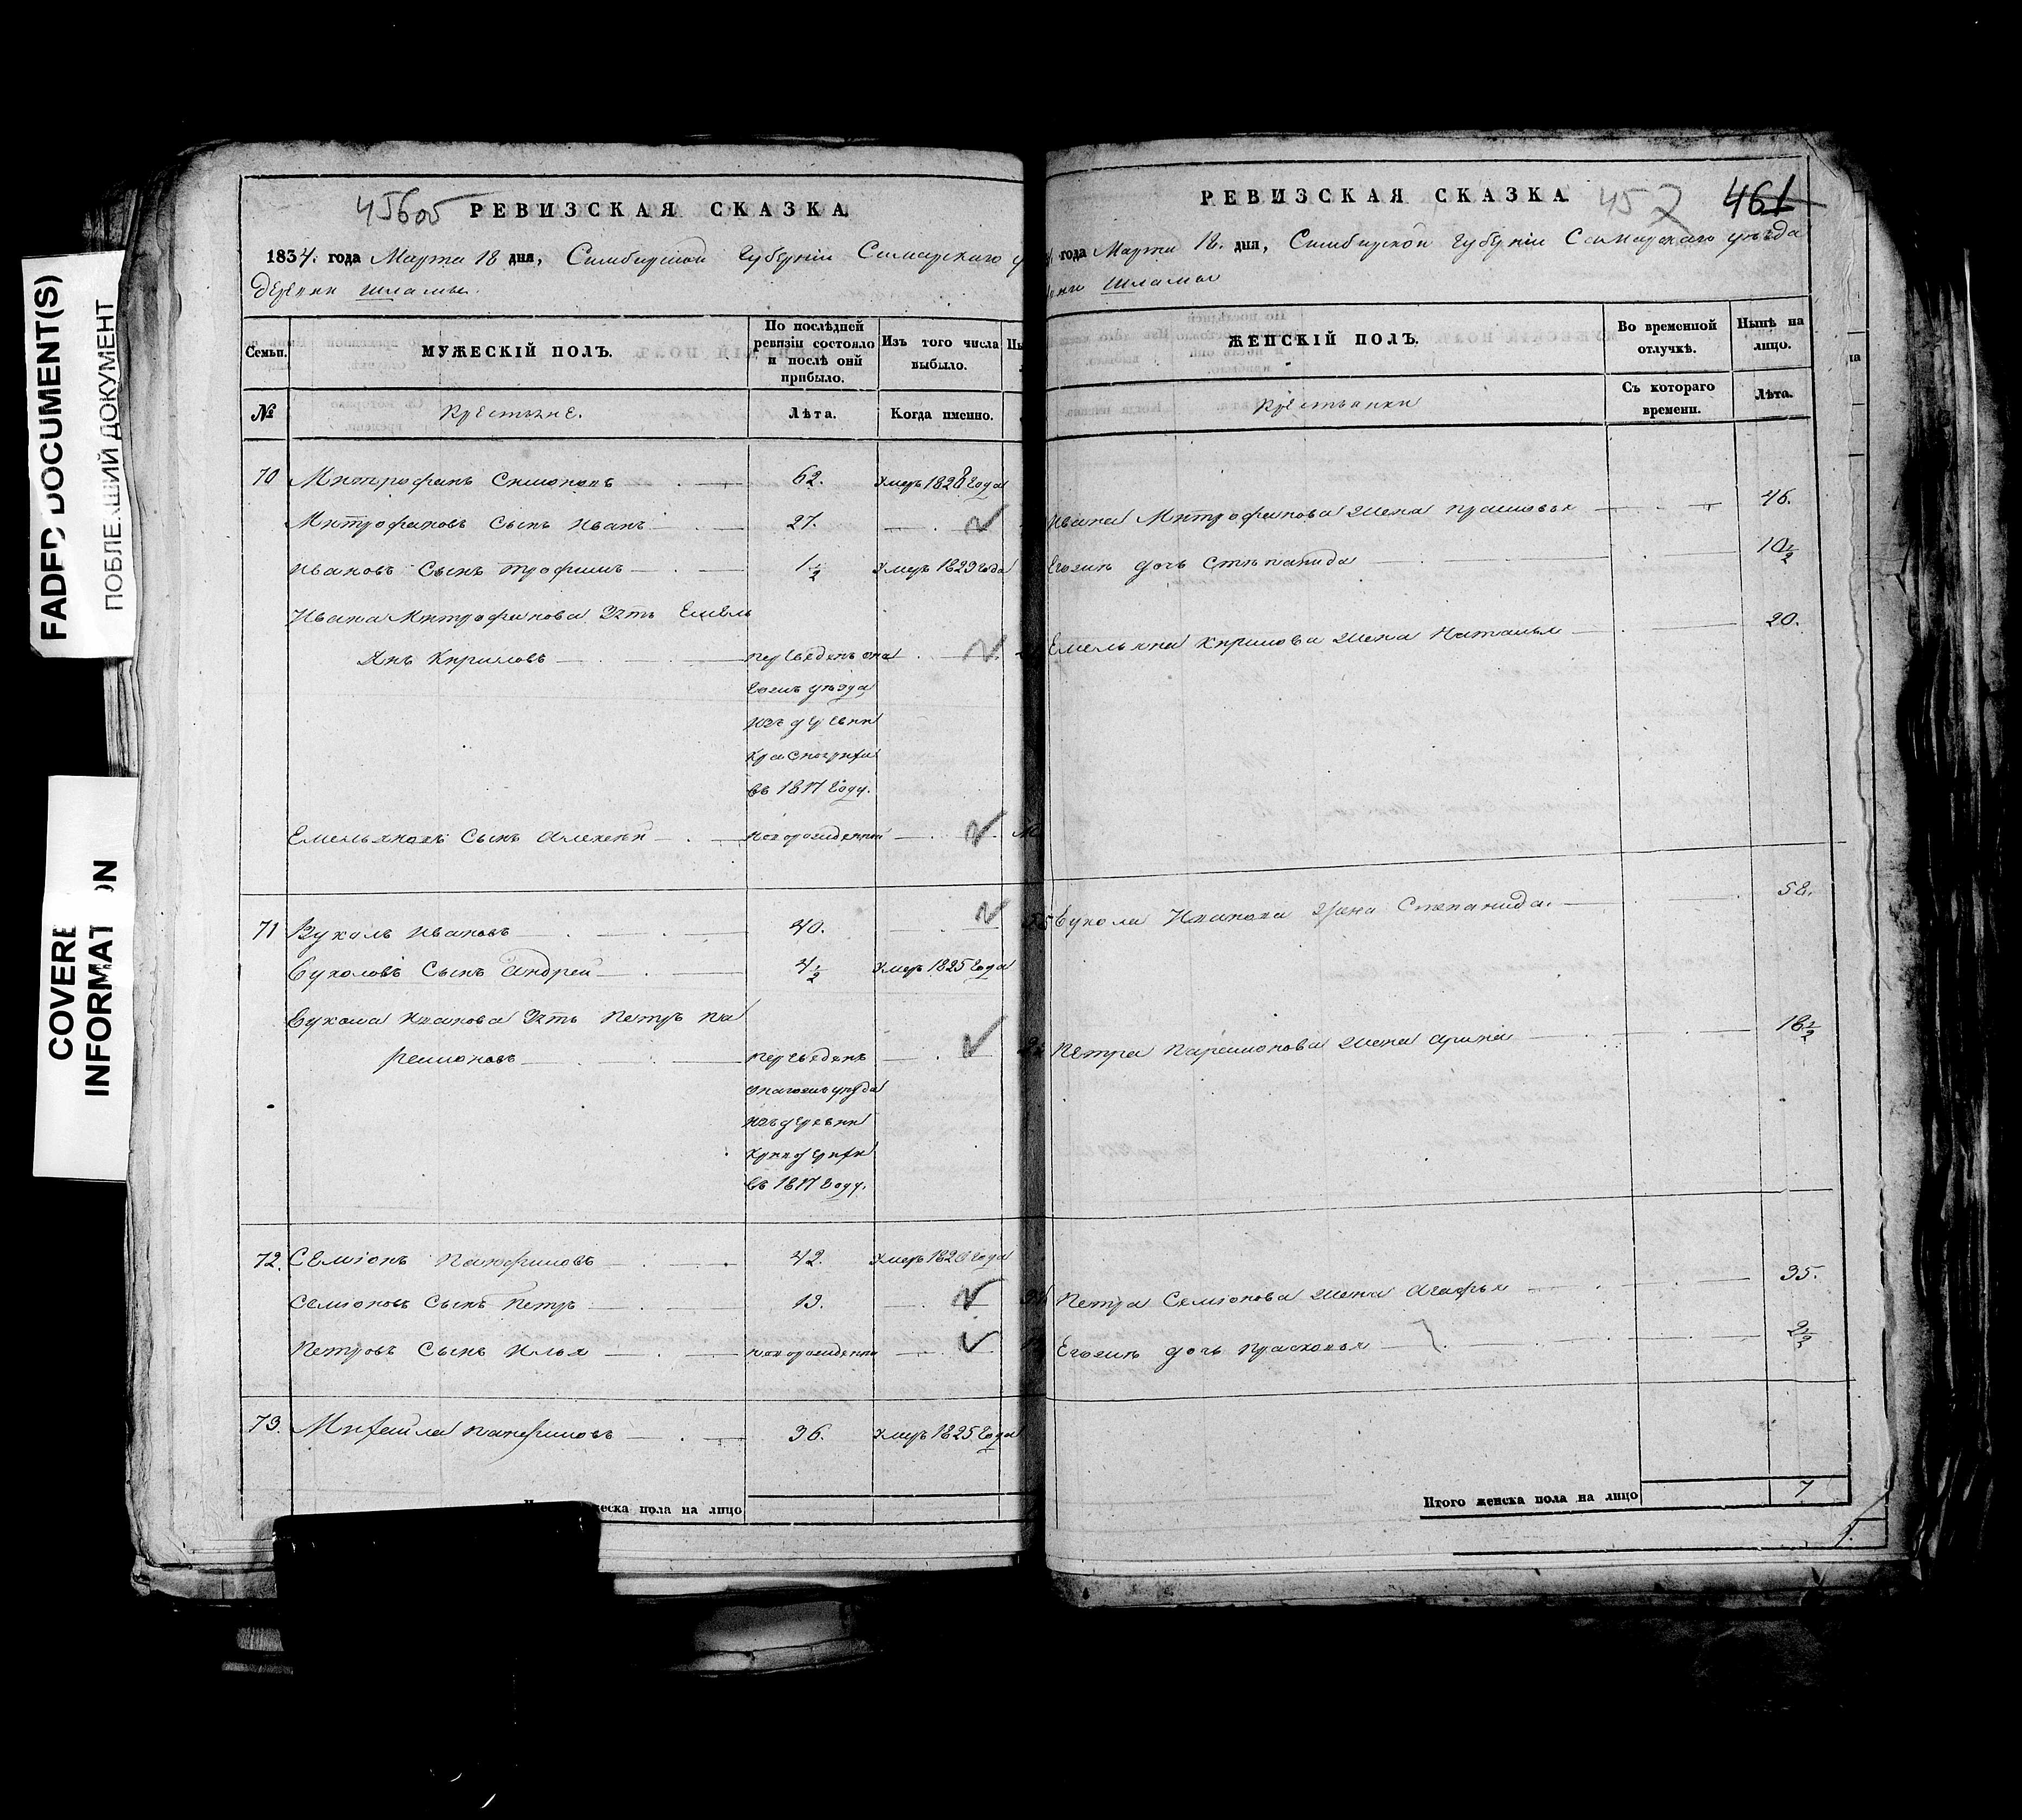 FADED DOCUMENT(S)
ПОБЛЕ ШИЙ ДОКУМЕНТ
COVERE
INFORMAT ON
456об
РЕВИЗСКАЯ СКАЗКА
1834. года Марта 18 дня, Симбирской Губернии Самарского
деревни Шламы.
Семьи.
МУЖЕСКІЙ ПОЛЪ.
По послѣдней ревизіи состояло и послѣ оній прибыло.
Изъ того числа выбыло.
№
Крестьяне.
Лѣта.
Когда именно.
70 Митрофанъ Симоновъ 62. Умеръ 1828 Года
Митрофановъ Сынъ Иванъ 27.
Ивановъ Сынъ Трофимъ 1 1/2 Умеръ 1829 Года
Ивана Митрофанова Зять Емель
янъ Кириловъ переведенъ
уезда
изъ деревни
въ 1817 Году.
Емельяновъ Сынъ Алексей новорожденной
71 Вуколъ Ивановъ 40.
Вуколовъ Сынъ Андрей 4 1/2 Умеръ 1825 Года
Вукола Иванова Зять Петръ Па
рамоновъ переведенъ
уезда
изъ деревни
въ 1817 Году.
72. Семіонъ Панфиловъ 42. Умеръ 1826 Года
Семіоновъ Сынъ Петръ 13.
Петровъ Сынъ Илья новорожденны
73. Михаила Панфиловъ 36. Умеръ 1825 Года
еска пола на лицо
РЕВИЗСКАЯ СКАЗКА 457 461
года Марта 18. дня, Симбирской Губерніи Самарскаго уезда
Шламы
ЖЕНСКІЙ ПОЛЪ.
Во временной отлучкѣ.
Нынѣ на лицо.
Крестьянки
Съ котораго времени.
Лѣта.
Ивана Митрофанова Жена Прасковья 46.
Егожъ дочь Степанида 10 1/2
Емельяна Кирилова Жена Наталья 20.
Вукола Иванова Жена Степанида. 58.
Петра Парамонова Жена Арина 18 1/2
Петра Семіонова Жена Агафья 35.
Егожъ дочь Прасковья 2 1/2
Итого женска пола на лицо 7